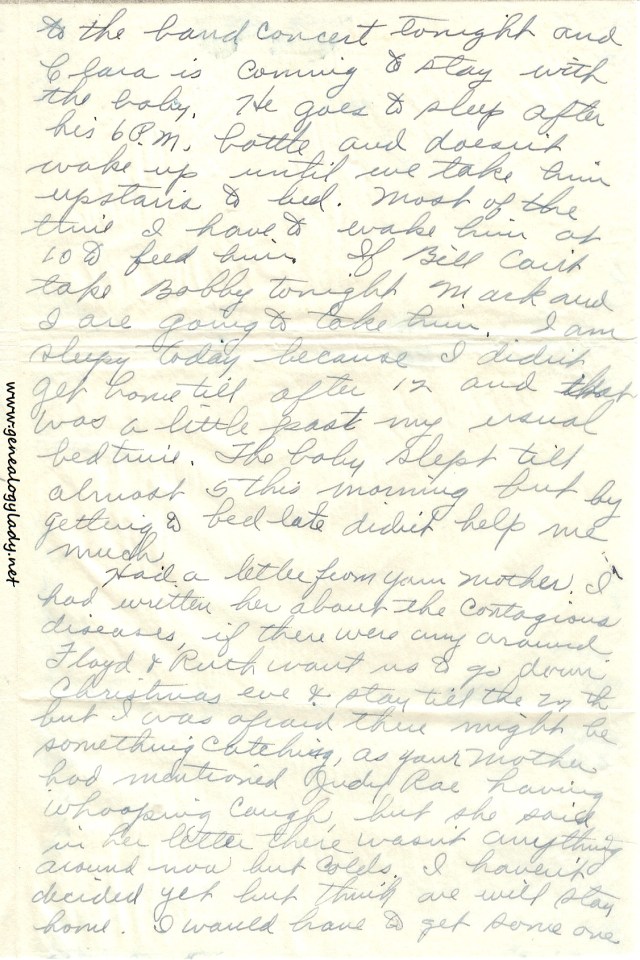 to the band concert tonight and
Clara is coming to stay with
the baby. He goes to sleep after
his 6 P.M. bottle and doesn't
wake up until we take him
upstairs to bed. Most of the
time I have to wake him at
10 to feed him. If Bill can't
take Bobby tonight Mark and
I are going to take him. I am
sleepy today because I didn't
get home till after 12 and that
was a little past my usual
bedtime. The baby slept till
almost 5 this morning but by
getting to bed late didn't help me
much.
Had a letter from your mother. I
had written her about the contagious
diseases, if there were any around
Floyd & Ruth want us to go down
Christmas eve & stay till the 27th
but I was afraid there might be
something catching, as your mother
had mentioned Judy Rae having
whooping cough, but she said
in her letter there wasn't anything
around now but colds. I haven't
decided yet but think we will stay
home. I would have to get some one
www.genealogylady.net